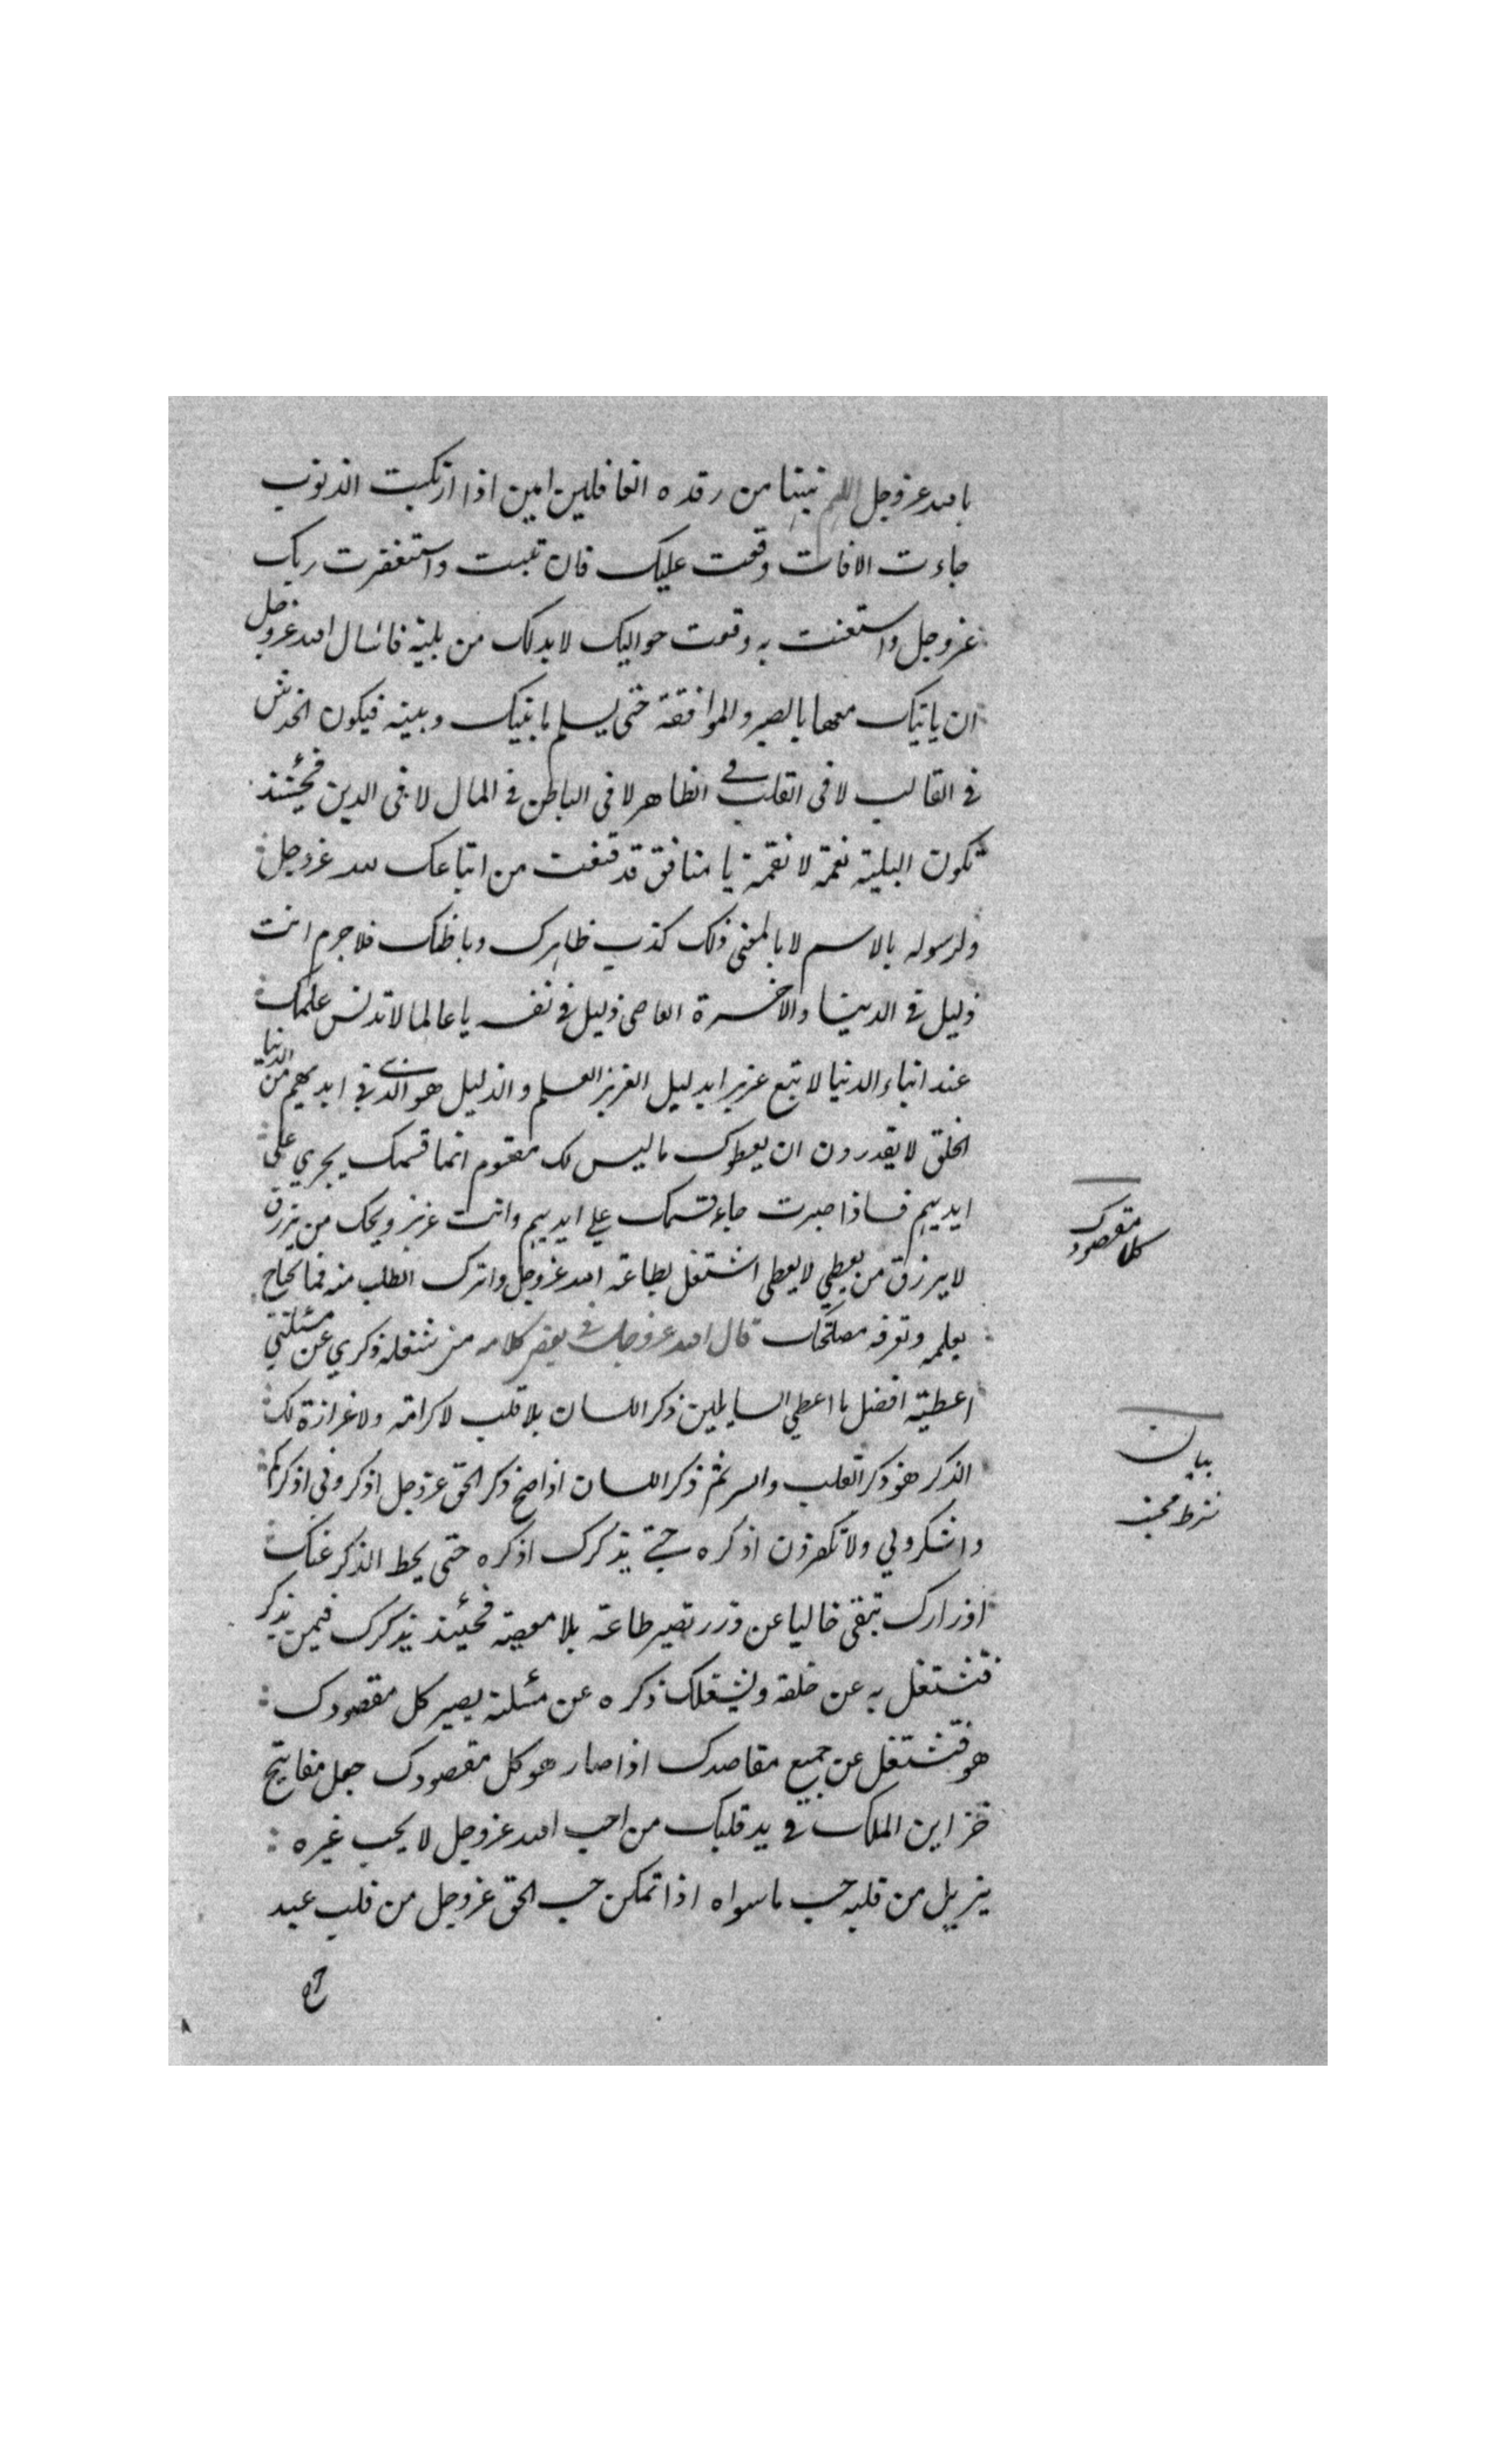 بالله عزوجل اللهم نبهنا من رقدة الغافلين امين اذا ارتكبت الذنوب
جاءت الافات وقعت عليك فان تبت واستغفرت ربك
عزوجل واستعنت به وقعت حواليك لا بد لك من بلية فاسال الله عزوجل
ان ياتيك معها بالصبر والموافقة حتى يسلم ما بينك وبينه فيكون الخدش
في القالب لا في القلب في الظاهر لا في الباطن في المال لا في الدين فحينئذ
تكون البلية نعمة لا نقمة يا منافق قد قنعت من اتباعك لله عزوجل
ولرسوله بالاسم لا بالمعنى ذلك كذب ظاهرك وباطنك فلا جرم انت
ذليل في الدنيا والاخرة العاصي ذليل في نفسه يا عالما لا تدنس علمك
عند ابناء الدنيا لا تبع عزيزا بذليل العزيز العلم والذليل هو الذي في ايديهم من الدنيا
الخلق لا يقدرون ان يعطوك ما ليس لك مقسوم انما قسمك يجري على
ايديهم فاذا صبرت جاء قسمك على ايديهم وانت عزيز ويحك من يرزق
لا يرزق من يعطي لا يعطى اشتغل بطاعة الله عزوجل واترك الطلب منه فما يحتاج
يعلمه وتعرفه مصلحتك قال الله عزوجل في بعض كلامه من شغله ذكري عن مسئلتي
اعطيته افضل ما اعطي السايلين ذكر اللسان بلا قلب لا كرامة ولا عزازة لك
الذكر هو ذكر القلب والسر ثم ذكر اللسان اذا صح ذكر الحق عزوجل اذكروني اذكركم
واشكروا لي ولا تكفرون اذكره حتى يذكرك اذكره حتى يحط الذكر عنك
اوزارك تبقى خاليا عن وزر تصير طاعة بلا معصية فحينئذ يذكرك فيمن يذكر
فتشتغل به عن خلقه ويشغلك ذكره عن مسئلته يصير كل مقصودك
هو فتشتغل عن جميع مقاصدك اذا صار هو كل مقصودك جعل مفاتيح
خزاين الملك في يد قلبك من احب الله عزوجل لا يحب غيره
يزيل من قلبه حب ما سواه اذا تمكن حب الحق عزوجل من قلب عبد
كل مقصودك
بيان
شرط محبت